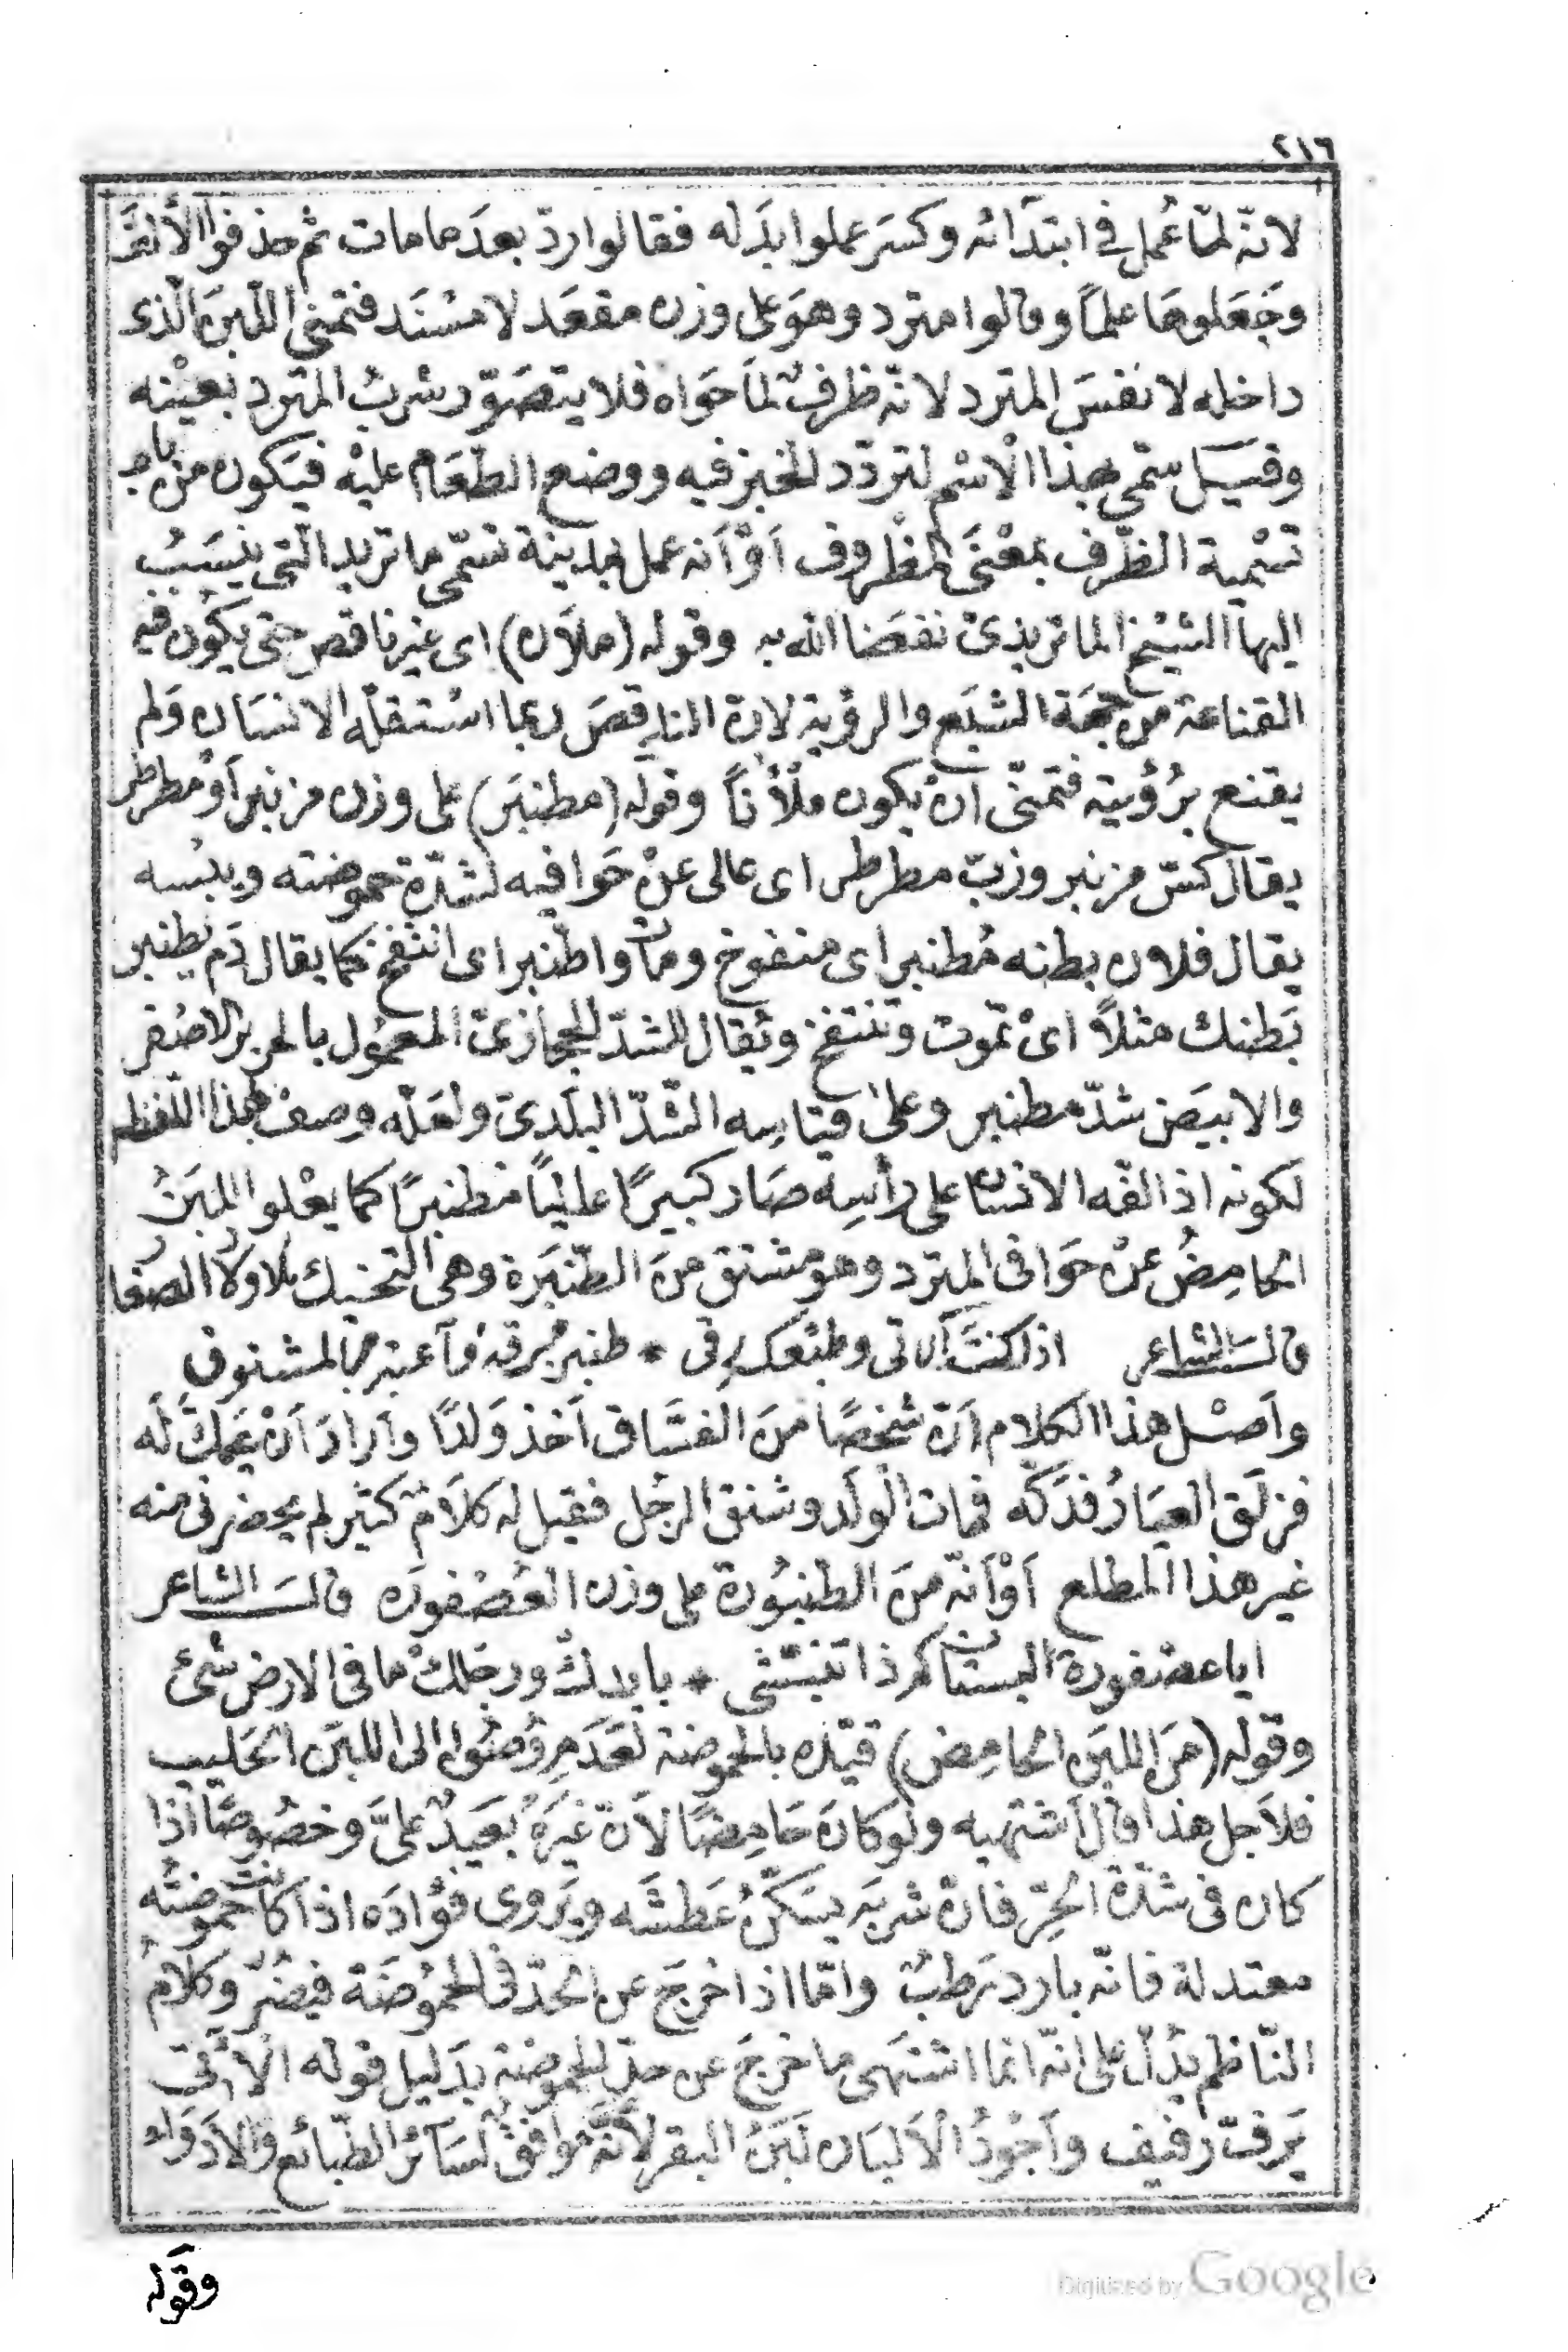 ٢١٦
لانّه لمّا عُمل في ابتدآئه وكسَر عملوا بدَله فقالوا ردّ بعدَ ما مات ثم حذفوا الألفَ
وجَعَلوهَا علماً وقالوا مترد وهوَ على وزن مقعَد لا مسْنَد فتمنى اللبنَ الّذى
داخله لا نفسَ المترد لانّه ظرفٌ لمَا حَوَاه فلا يتصَوّر شربُ المترد بعيْنه
وقيل سمّى بهذا الاسْم لتردّد الخبز فيه ووضع الطّعَام عليْه فيَكون من باب
تسْمية الظّرف بمعْنَى المظْروف أوْ أنه عمل بمدينة تسمّى ماتريد التى ينسَبُ
اليهآ الشيْخ الماتريدىّ نفعَنا الله به وقوله (ملآن) اى غير ناقص حتى يكوُن فيه
القناعة من جهَة الشبَع والرؤية لانّ الناقصَ ربما اسْتقلّه الانسَان وَلم
يقنع برُؤيته فتمنّى أنْ يكون ملْأناً وقوله (مطنبَر) على وزن مزنبر أوْ مطرطر
يقال كسّ مزنبر وزبّ مطرطر اى عالى عنْ حَوافيه لشدّة حموضته ويبْسه
يقال فلان بطنه مُطنبر اى منفوخ ومات واطنبر اى انتفخ كما يقال دَم يُطنبر
بَطنك مثلاً اىْ تموت وتنتفخ ويُقال للشدّ الحجازىّ المعموُل بالحرير الاصْفر
والابيَض شدّ مطنبر وعلىٰ قيَاسِه الشّدّ البلَدىّ ولعَلّه وصفْ بهذا اللّفظ
لكونه اذا لفّه الانسَان على رأسِه صَار كبيرًا عالياً مُطنبرًا كما يعْلو اللبَنُ
الحامِضُ عنْ حَوافى المترد وهو مشتق منَ الطّنبَرة وهى التحنيك بلا ولاء الصغار
قال الشاعر اذا كنتَ آلاتى وطبْعك رقى * طنبر بُرقه وآعبر بالمشنوق
وأصْل هذا الكلام أنّ شخصًا منَ الفسّاق أخذ وَلدًا وأرادَ أنْ يَمْلك لَه
فزلَق العيَار فدَكّه فمات الولَد وشنق الرجُل فقيل له كلَامٌ كثير لم يحضرنى منه
غير هذا المطلع أوْ أنّه منَ الطنبوُرة على وزن العُصْفورَه قال الشاعر
ايا عصْفورة البستان كم ذا تنبشى * بايدك ورجلكْ ما فى الارض شىْ
وقوله (منَ اللبَن الحامِض) قيّده بالحموضة لعَدَمِ وُصُوله الى اللبَن الحَليب
فلأجل هذا قال أشتهيه ولو كانَ حَامِضًا لأنّ غيَرَهُ بعَيدٌ علىَّ وخصُوصًا اذا
كان فى شدّة الحرِّ فانّ شربَه يسَكّنُ عَطشَه ويرَوى فؤادَه اذا كانت حموضتُه
معتدلة فانّه بارد رَطبٌ وامّا اذا خرجَ عن الحدّ فى الحموُضَة فيضُرّ وكلَامُ
النّاظم يدُلّ على انّه انما اشتهَى ما خرجَ عن حدّ الحموضة بدَليل قوله الآتى
يَرفّ رفيف وأجْودُ الأَلبَان لبَنُ البقر لأنّهُ موَافقٌ لسَائر الطبّائع والأدوَاء
وقوله
Digitized by Google